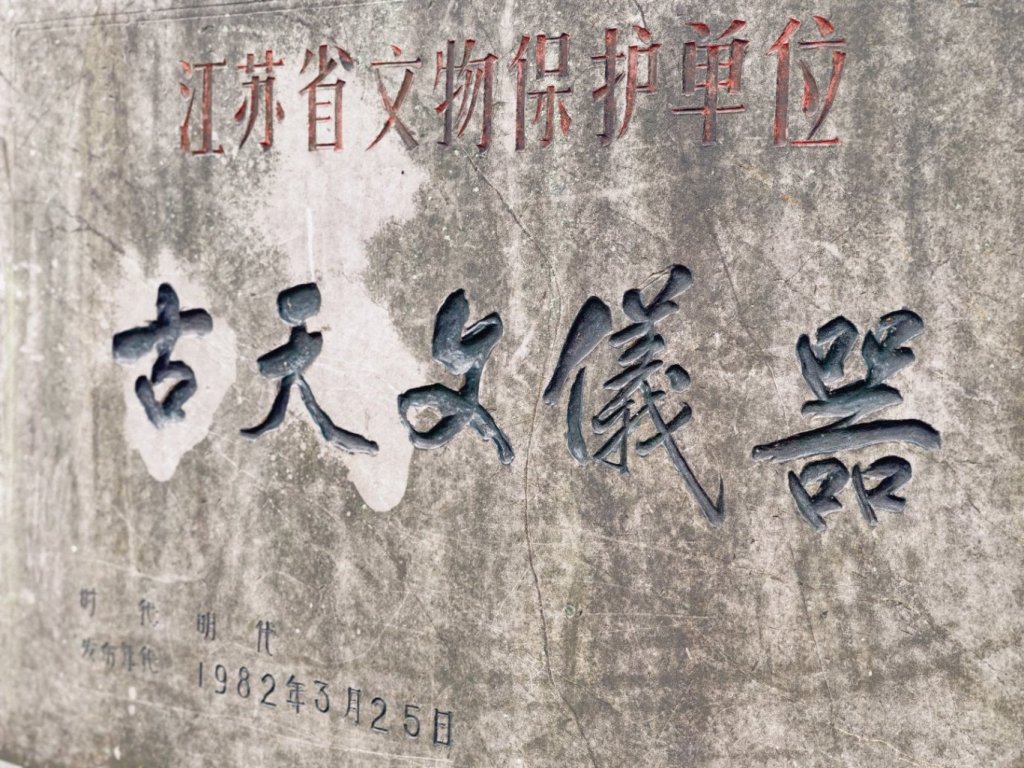 江苏省文物保护单位
古天文儀器
时代 明代
发布年代 1982年3月25日